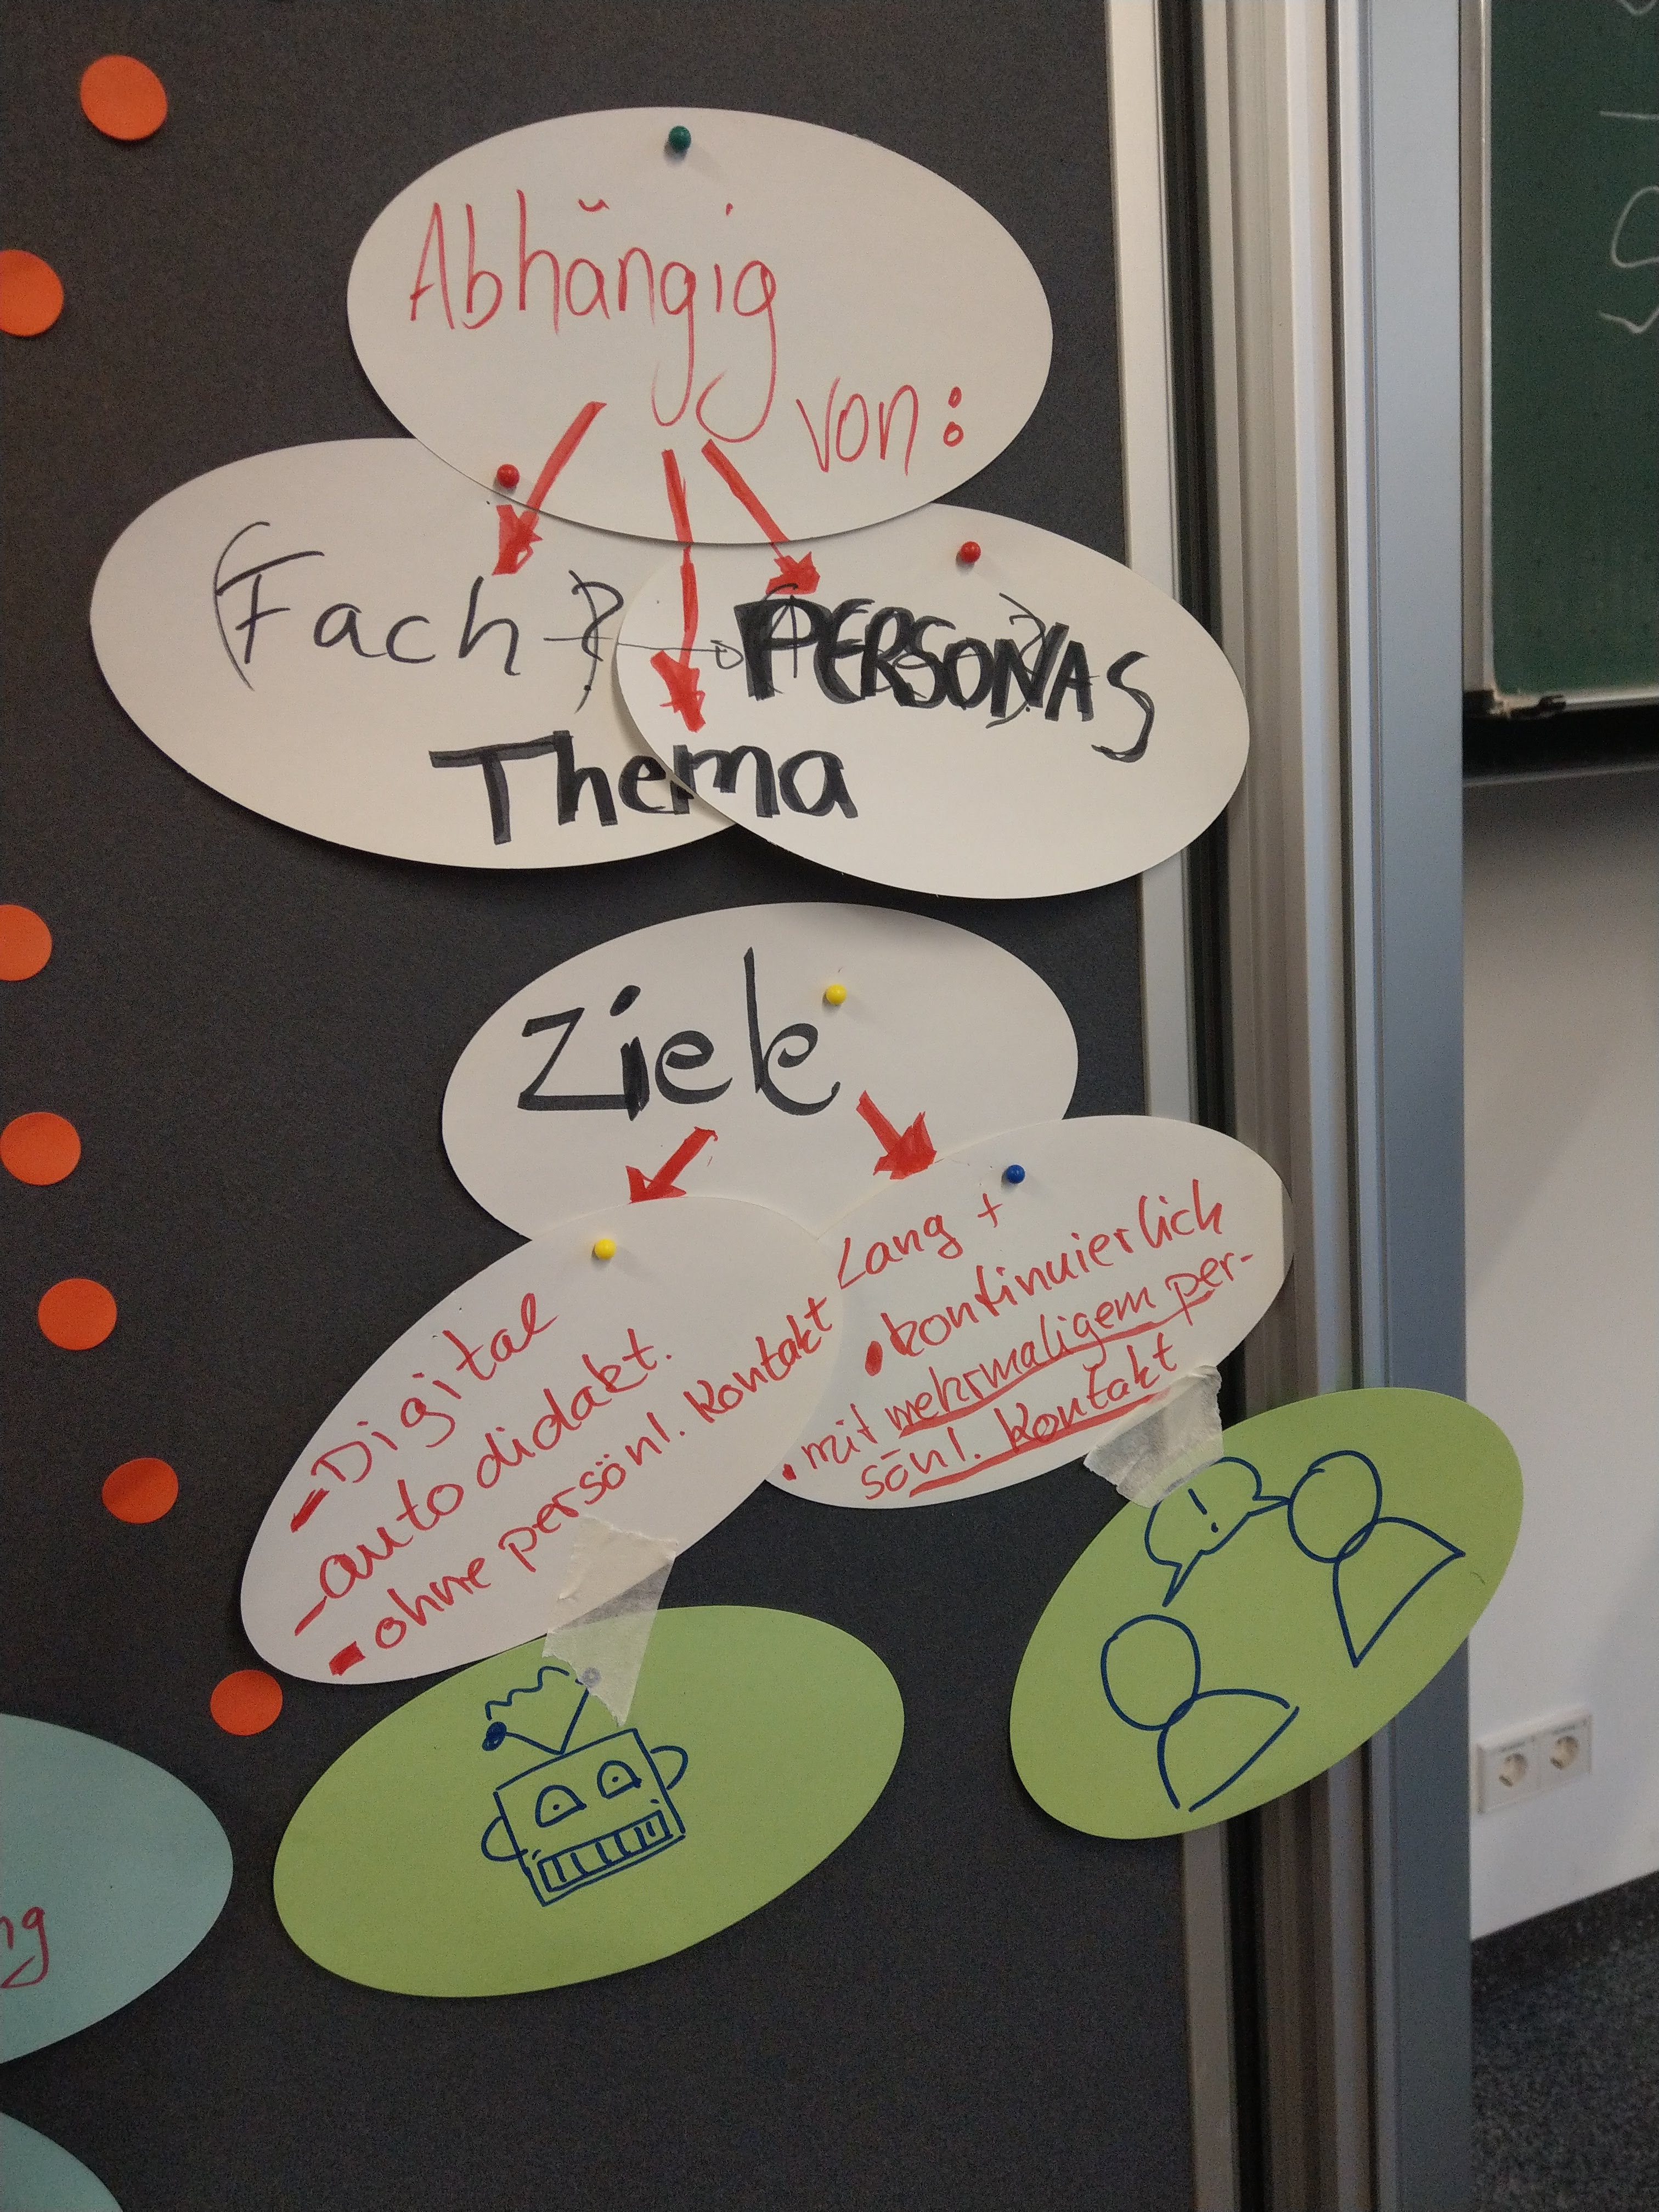 Abhängig
von:
(Fach?)
PERSONAS
Thema
Ziele
- Digital
- autodidakt.
- ohne persönl. Kontakt
Lang +
• kontinuierlich
• mit mehrmaligem per-
sönl. Kontakt
!
ng